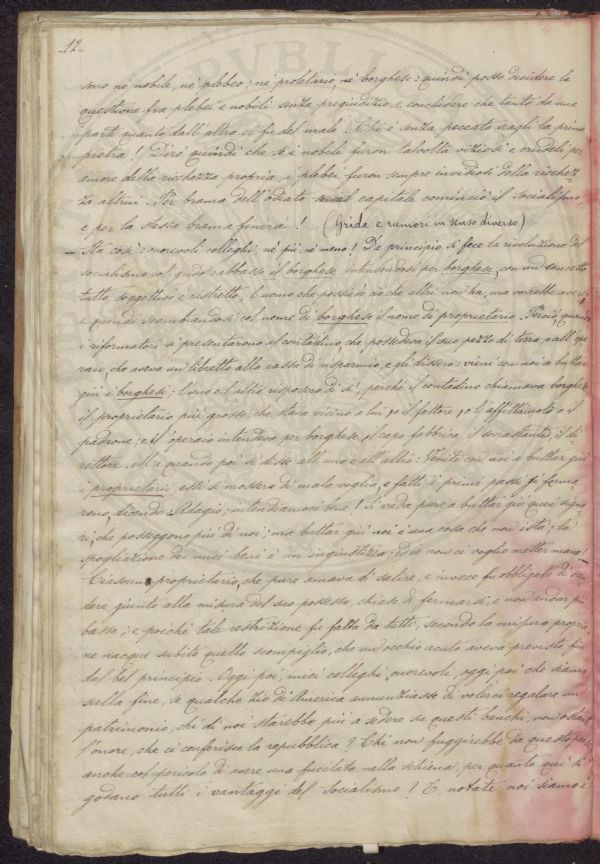 12_
sono nè nobile, nè plebeo; nè proletario, nè borghese: quindi posso decidere la
questione fra plebei e nobili senza pregiudizio, e concludere che tanto da una
parte quanto dall'altra ci fu del male. Chi è senza peccato scagli la prima
pietra! Dirò quindi che se i nobili furon talvolta viziosi e crudeli per
amore della ricchezza propria, i plebei furon sempre invidiosi della ricchez
za altrui. Per brama dell'odiato capitale cominciò il socialismo,
e per la stessa brama finirà! (Grida e rumori in senso diverso)
– Sta così onorevoli colleghi, nè più, nè meno! Da principio si fece la rivoluzione del
socialismo col grido: abbasso il borghese, intendendosi per borghese, con un concetto
tutto soggettivo e ristretto, l'uomo che possiede ciò che altri non ha, ma vorrebbe avere;
e quindi scambiandosi col nome di borghese il nome di proprietario. Perciò, quando
i riformatori si presentarono al contadino, che possedeva il suo pezzo di terra, o all'ope
raio che aveva un libretto alla cassa di risparmio, e gli dissero: vieni con noi a buttar
giù i borghesi; l'uno e l'altro risposero di sì, perchè il contadino chiamava borghese
il proprietario più grosso che stava vicino a lui, o il fattore, o l'affittaiuolo o il
padrone; e l'operaio intendeva per borghese, il capo fabbrica, il sorastante, il di
rettore. Ma quando poi si disse all'uno e all'altro: Venite con noi a buttar giù
i proprietarii essi si mossero di mala voglia, e fatti i primi passi si ferma
rono, dicendo: Adagio; intendiamoci bene! Si vada pure a buttar giù quei signo
ri, che posseggono più di noi; ma buttar giù noi è una cosa che non istà; la
spogliazione dei miei beni è un'ingiustizia; ed io non ci voglio metter mano!
Ciascun proprietario, che pure amava di salire, e invece fu obbligato di scen
dere, giunto alla misura del suo possesso, chiese di fermarsi, e non andar più
basso; e poichè tale restrizione fu fatta da tutti, secondo la misura propria,
ne nacque subito quello scompiglio, che un occhio acuto aveva previsto fin
dal bel principio. Oggi poi, miei colleghi onorevoli, oggi poi che siamo
sulla fine, se qualche zio di America annunziasse di volerci regalare un
patrimonio, chi di noi starebbe più a sedere su questi banchi, non ostante
l'onore, che ci conferisce la repubblica? Chi non fuggirebbe da questo
anche col pericolo di avere una fucilata nella schiena, per quanto qui si
godano tutti i vantaggi del socialismo? E, notate noi siamo i